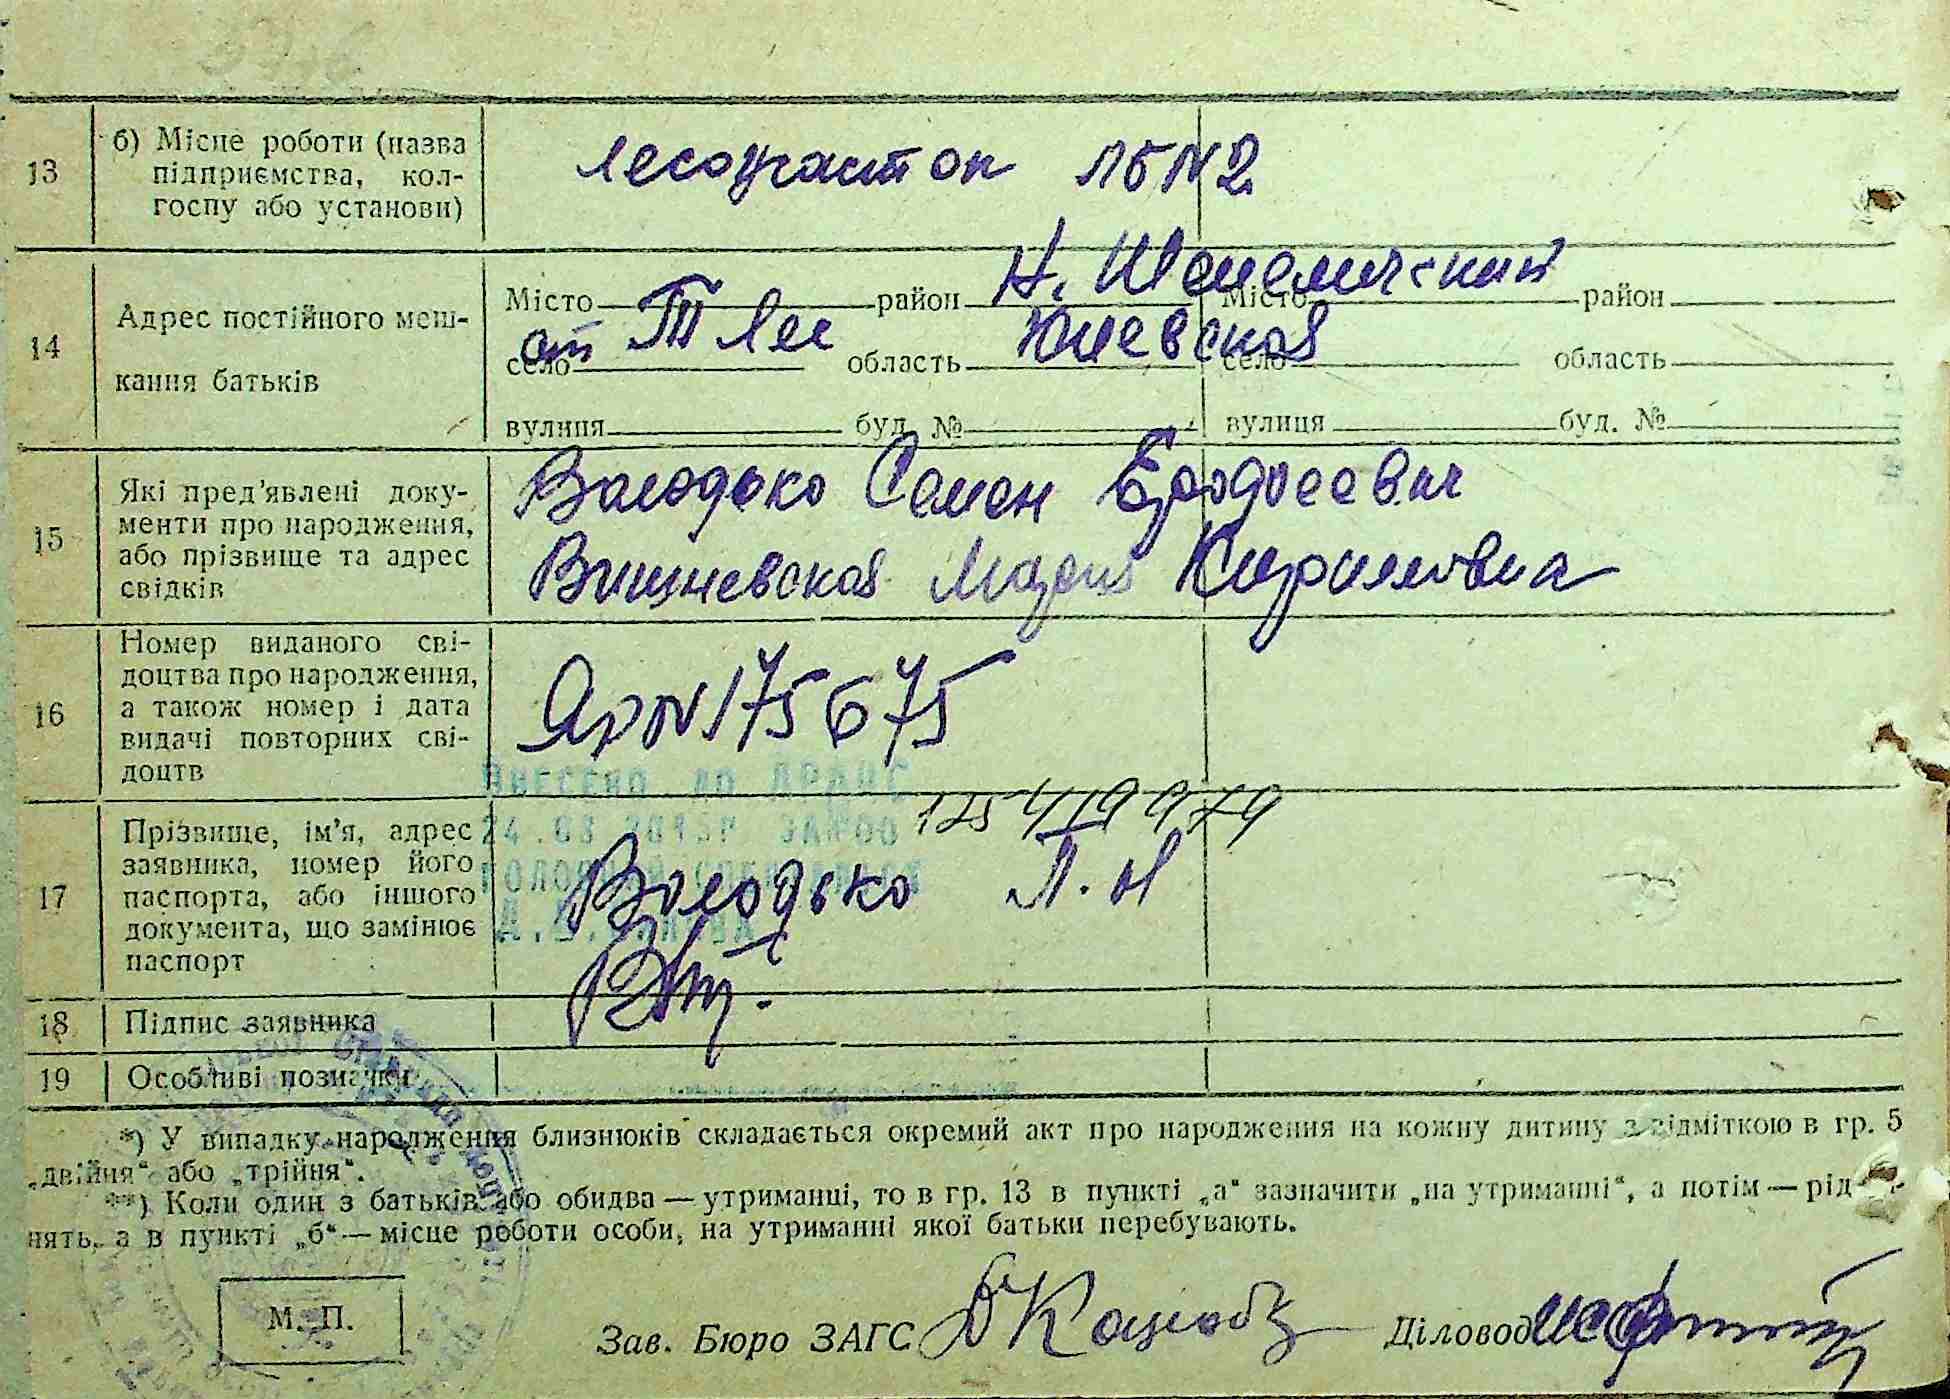 13
б) Місце роботи (назва
підприємства, кол-
госпу або установи)
лесоучасток ЛБ N 2
14
Адрес постійного меш-
кання батьків
Н. Шепеличский
Місто район Місто район
ст Лес Киевская
село область село область
вулиця буд. № вулиця буд. №
15
Які пред'явлені доку-
менти про народження,
або прізвище та адрес
свідків
Володько Семен Ерофеевич
Вишневская Мария Кириловна
16
Номер виданого сві-
доцтва про народження,
а також номер і дата
видачі повторних сві-
доцтв
N 175675
ВНЕСЕНО ДО ДРАЦС
17
Прізвище, ім'я, адрес
заявника, номер його
паспорта, або іншого
документа, що замінює
паспорт
Володько П. Н
18
Підпис заявника
19
Особливі позначки
*) У випадку народження близнюків складається окремий акт про народження на кожну дитину з відміткою в гр. 5
„двійня“ або „трійня“.
**) Коли один з батьків або обидва — утриманці, то в гр. 13 в пункті „а“ зазначити „на утриманні“, а потім — рід
нять, а в пункті „б“ — місце роботи особи, на утриманні якої батьки перебувають.
М. П.
Зав. Бюро ЗАГС
Діловод